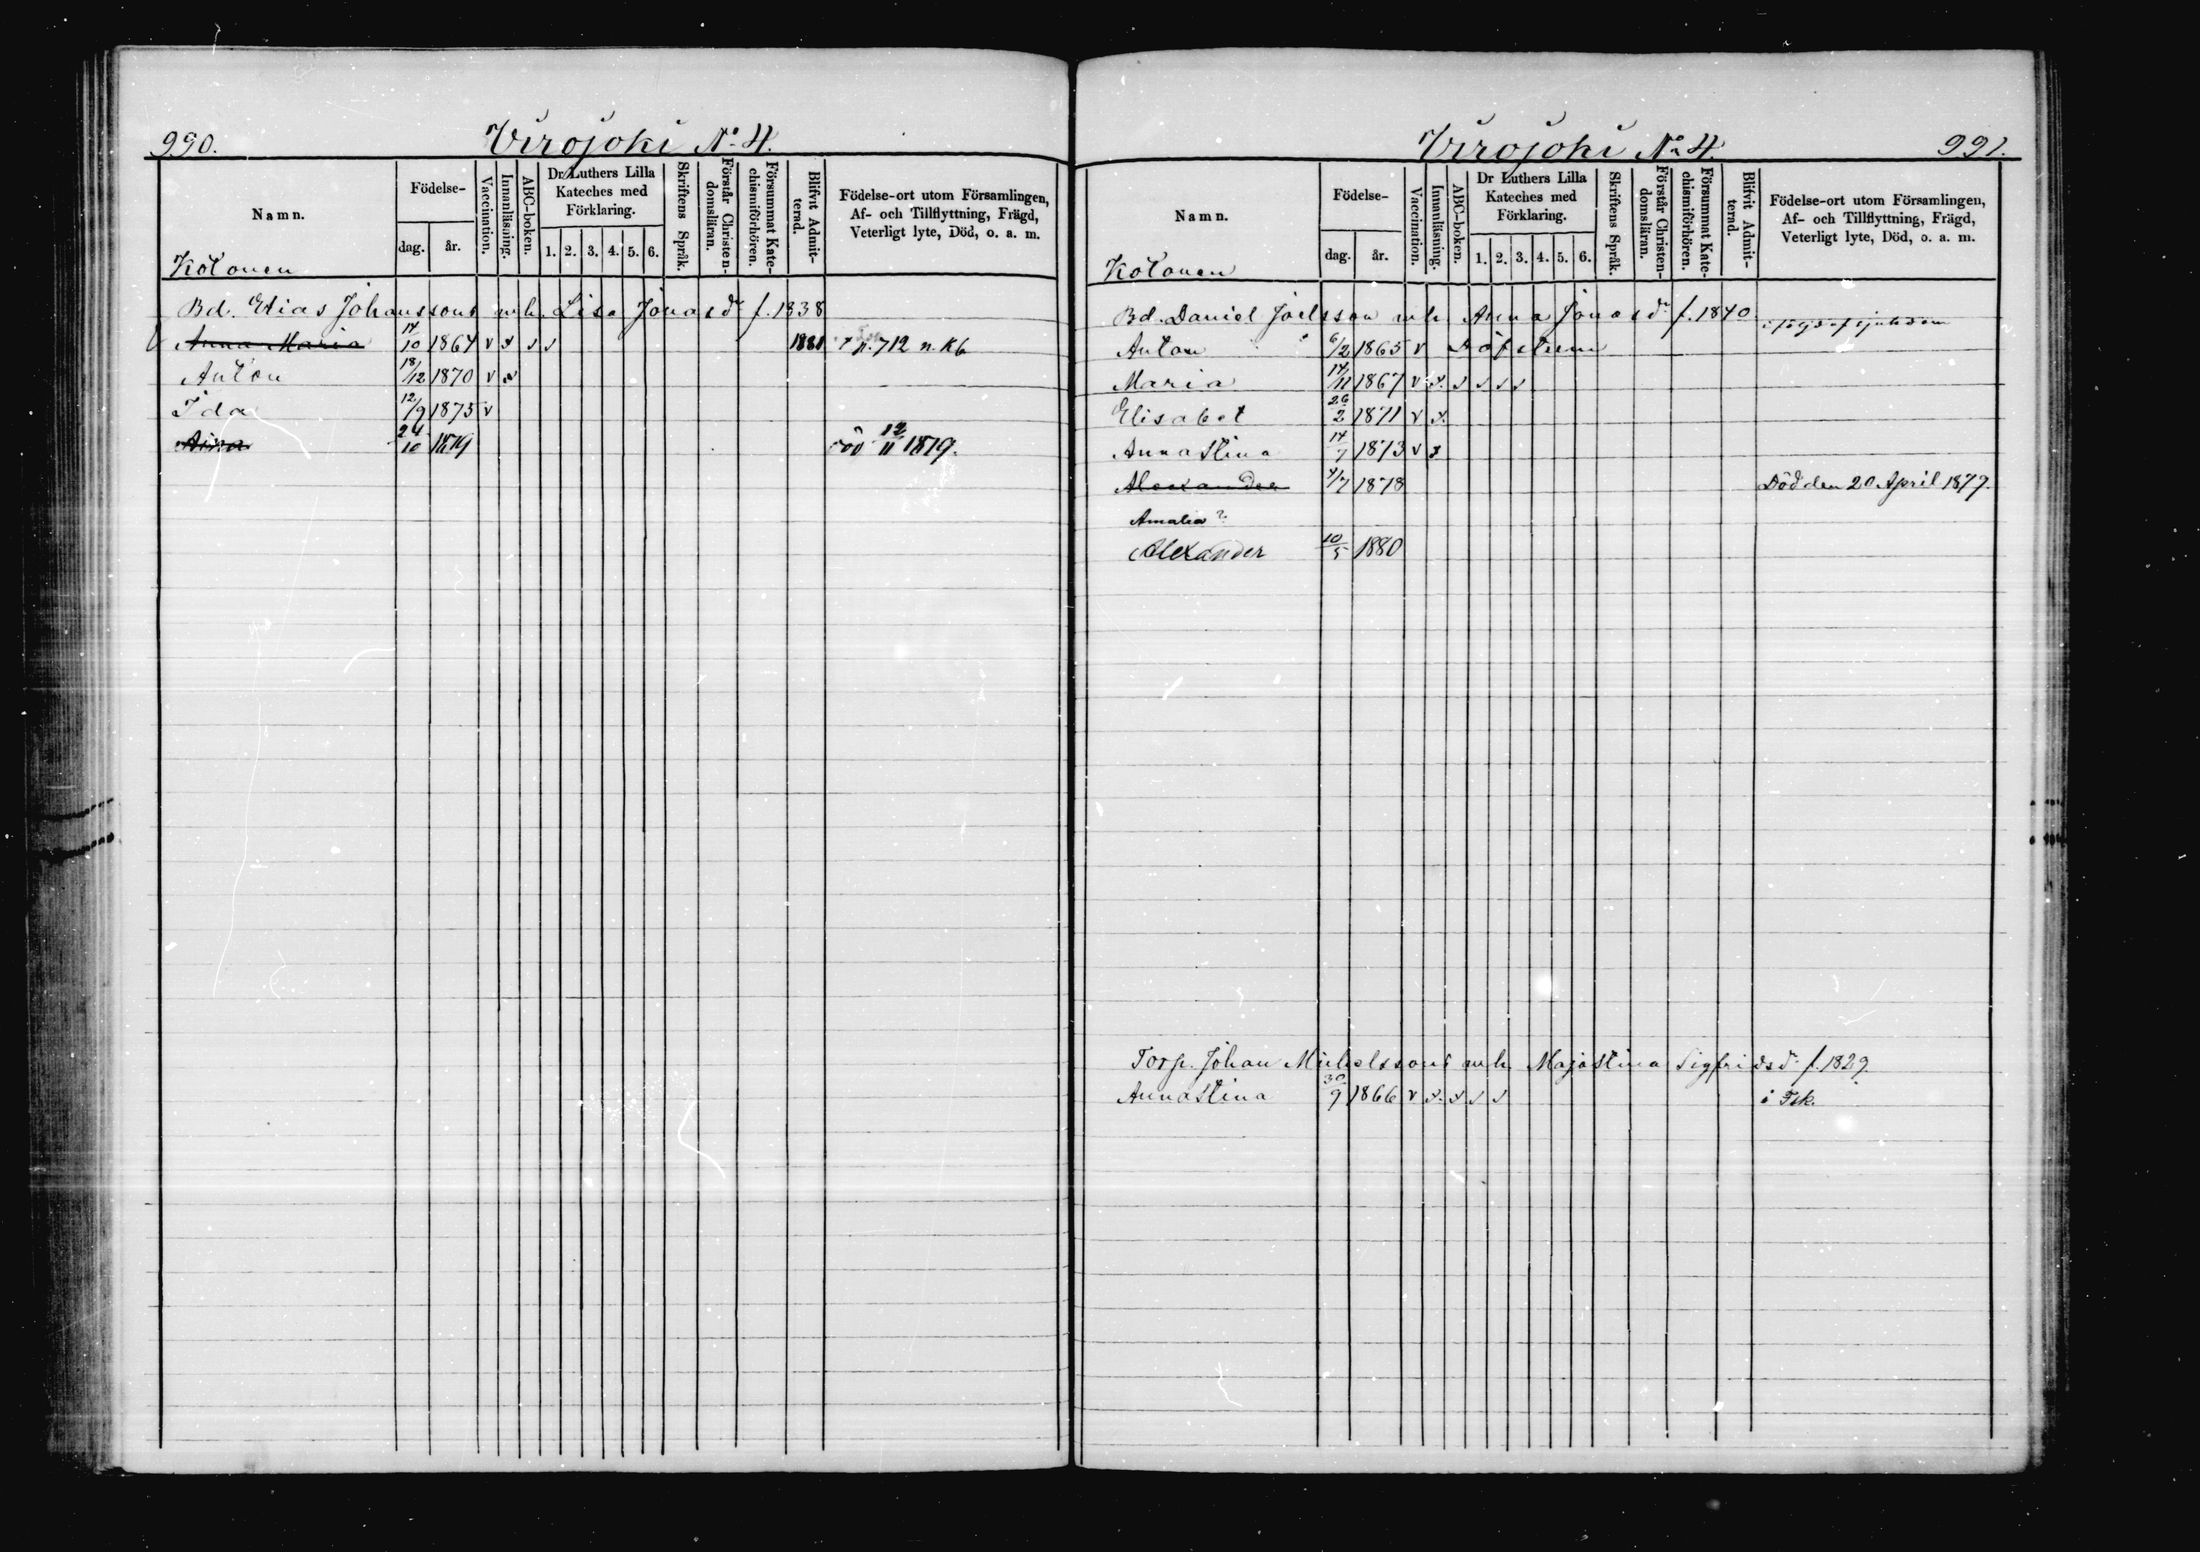 990. Virojoki No 4.
Namn. Födelse- dag. år. Vaccination. Innanläsning. ABC-boken. Dr Luthers Lilla Kateches med Förklaring. 1. 2. 3. 4. 5. 6. Skriftens Språk. Förstår Christendomsläran. Försummat Katechismiförhören. Blifvit Admitterad. Födelse-ort utom Församlingen, Af- och Tillflyttning, Frägd, Veterligt lyte, Död, o. a. m.
Kotonen
Bd. Elias Johanssons mh. Lisa Jonasdr f. 1838
Anna Maria 14/10 1864 v x s s 1881 n. 712 n. Kb
Anton 18/12 1870 v x
Ida 12/9 1875 v
Aina 24/10 1879 död 12/11 1879.
Virojoki No 4. 991.
Namn. Födelse- dag. år. Vaccination. Innanläsning. ABC-boken. Dr Luthers Lilla Kateches med Förklaring. 1. 2. 3. 4. 5. 6. Skriftens Språk. Förstår Christendomsläran. Försummat Katechismiförhören. Blifvit Admitterad. Födelse-ort utom Församlingen, Af- och Tillflyttning, Frägd, Veterligt lyte, Död, o. a. m.
Kotonen
Bd. Daniel Joelsson mh Anna Jonasdr f. 1840.
Anton 6/2 1865 v Döfstum
Maria 14/11 1867 v x. s s s s
Elisabet 26/2 1871 v x.
Annastina 14/7 1873 v x
Alexander 4/7 1878 Död den 20 April 1879.
Amalia?
Alexander 10/5 1880
Torp. Johan Michelssons mh Majastina Sigfridsdr f. 1829.
Annastina 30/9 1866 v x. x s s i Fsk.